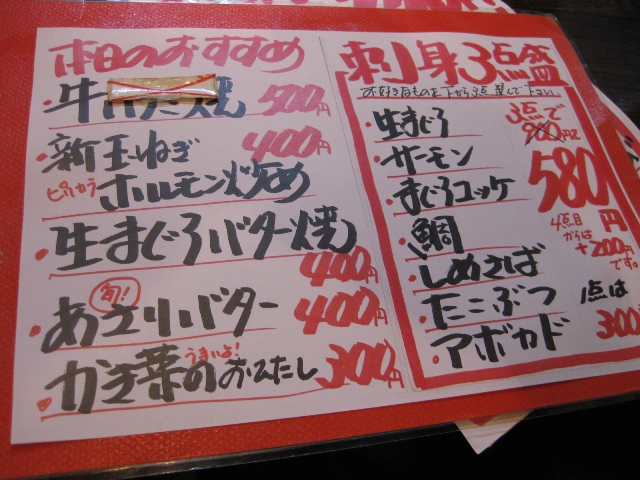 本日のおすすめ
牛 焼 500円
新玉ねぎ 400円
ピリカラ ホルモン炒め
生まぐろバター焼 400円
旬! あさりバター 400円
うまいよ!
かき菜のおひたし 300円
刺身3点盛
お好きなものを下から3点選んで下さい
生まぐろ
サーモン
まぐろユッケ
鯛
しめさば
たこぶつ
アボカド
3点で
580円
4点目からは
+200円です。
1点は
300